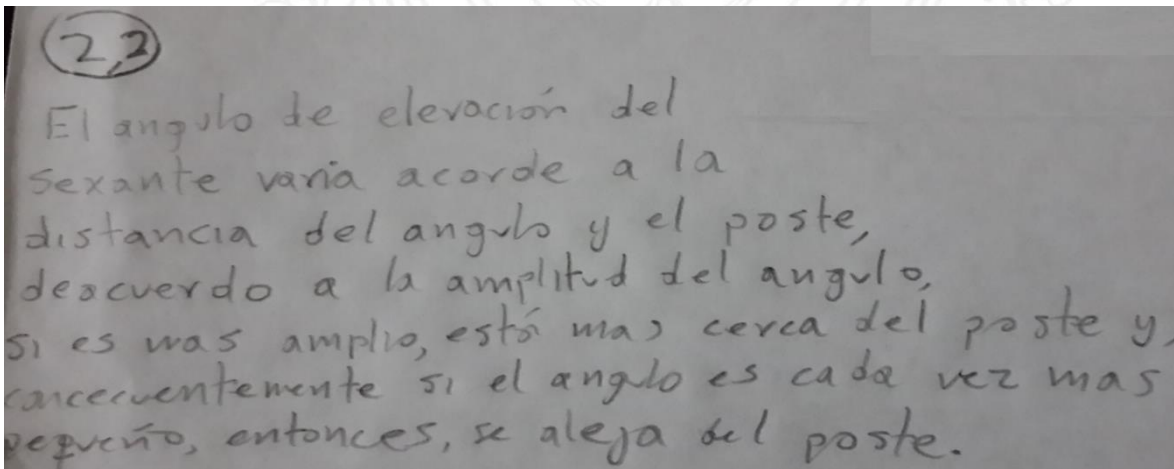 2,2
El angulo de elevación del
sexante varia acorde a la
distancia del angulo y el poste,
deacuerdo a la amplitud del angulo,
si es mas amplio, está mas cerca del poste y,
concecuentemente si el angulo es cada vez mas
pequeño, entonces, se aleja del poste.